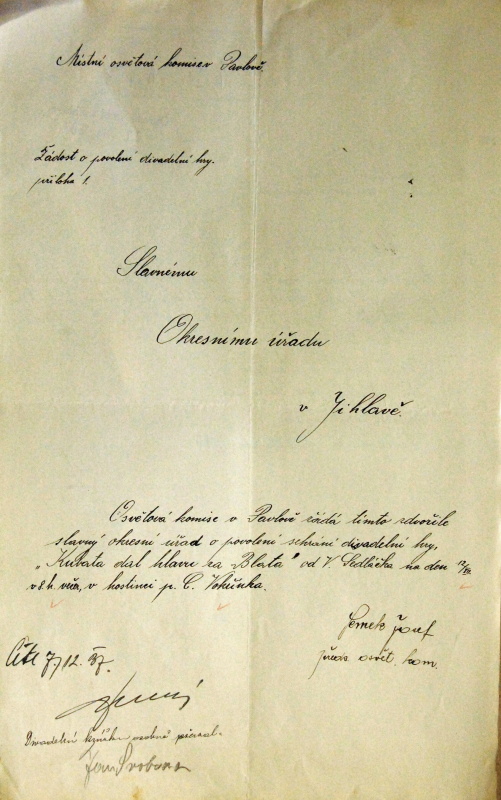 Místní osvětová komise v Pavlově.
Žádost o povolení divadelní hry.
příloha 1.
Slavnému
Okresnímu úřadu
v Jihlavě.
Osvětová komise v Pavlově žádá tímto zdvořile
slavný okresní úřad o povolení sehrání divadelní hry,
„Kubata dal hlavu za Blata" od V. Sedláčka na den 12/XII.
v 8. h. več., v hostinci p. C. Vokůnka.
Josef
před. osvět. kom.
7/12. 37.
Divadelní osobně
Jan Svoboda